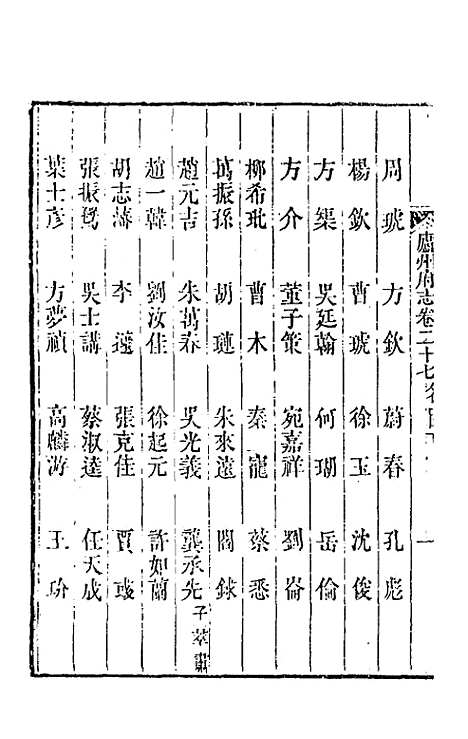 廬州府志卷二十七 一
周琥 方欽 蔚春 孔彪
楊欽 曹琥 徐玉 沈俊
方渠 吳廷翰 何瑚 岳倫
方介 董子策 宛嘉祥 劉崙
柳希玭 曹木 秦寵 蔡悉
萬振孫 胡璉 朱來遠 閻銇
趙元吉 朱萬春 吳光義 龔承先 子萃肅
趙一韓 劉汝佳 徐起元 許如蘭
胡志藩 李遠 張克佳 賈彧
張振鷺 吳士講 蔡淑逵 任天成
葉士彥 方夢禎 高麟游 王